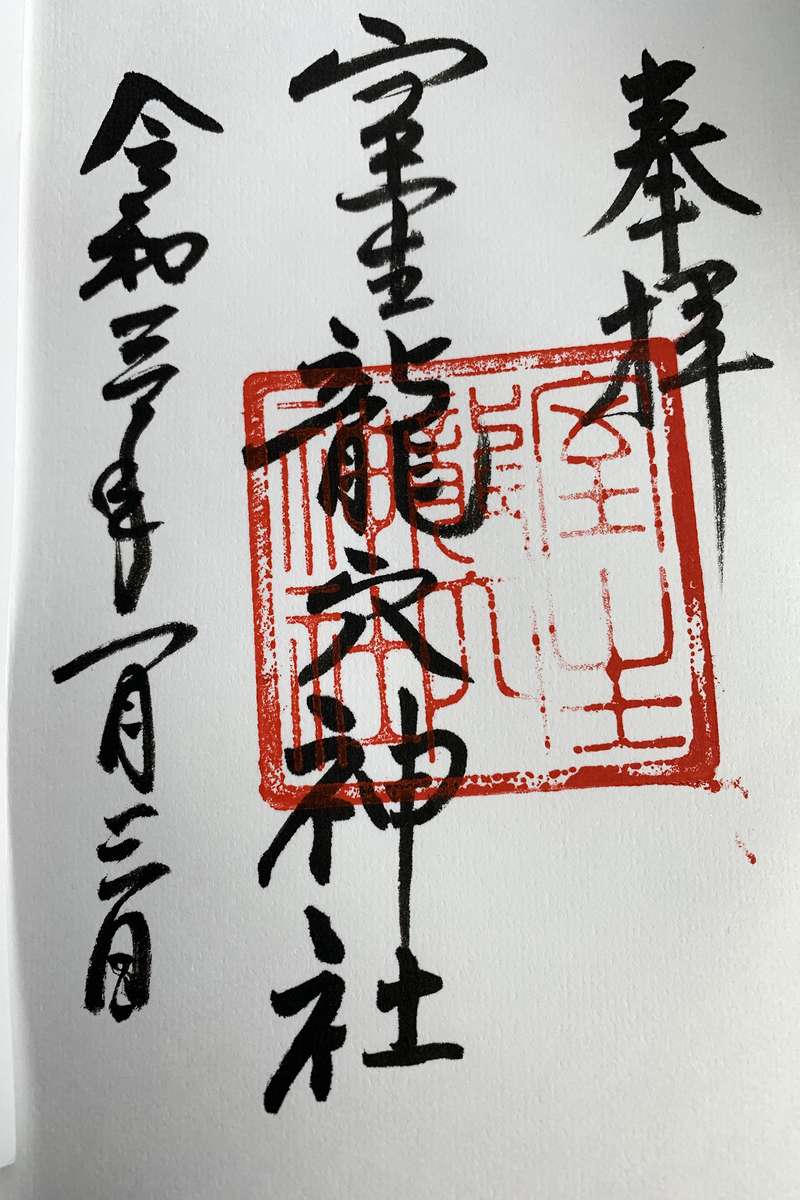 奉拝
室生龍穴神社
令和三年一月三日
室生龍穴神社